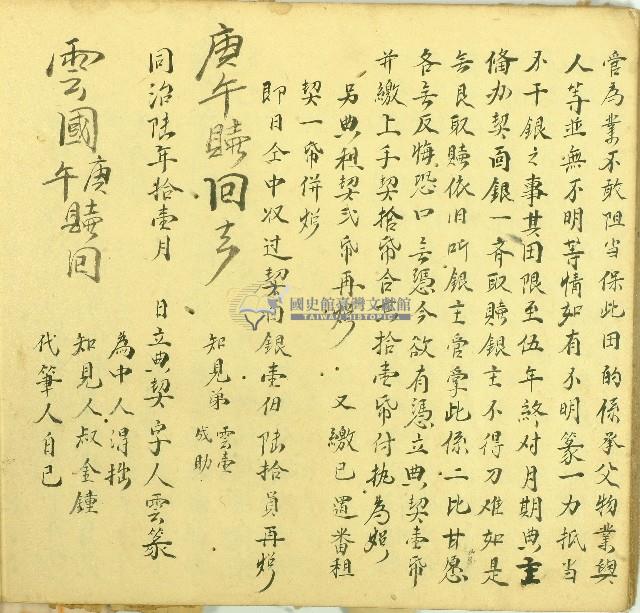 管為業不敢阻当保此田的係承父物業與
人等並無不明等情如有不明篆一力抵当
不干銀之事其田限至伍年終对月期典主
俻办契面銀一齐取贖銀主不得刁难如是
無艮取贖依旧听銀主管掌此係二比甘愿
各無反悔恐口無憑今欲有憑立典契壹帋
并繳上手契拾帋合共拾壹帋付执為炤
另典租契弍帋再炤 又繳已置番租
契一帋併炤
即日仝中収过契面銀壹佰陆拾員再炤
庚午贖回去
知見弟 雲壹
成助
同治陆年拾壹月 日立典契字人雲篆
為中人淂拙
知見人叔金鍾
代筆人自己
雲國庚午贖回
國史館臺灣文獻館
TAIWAN HISTORICA